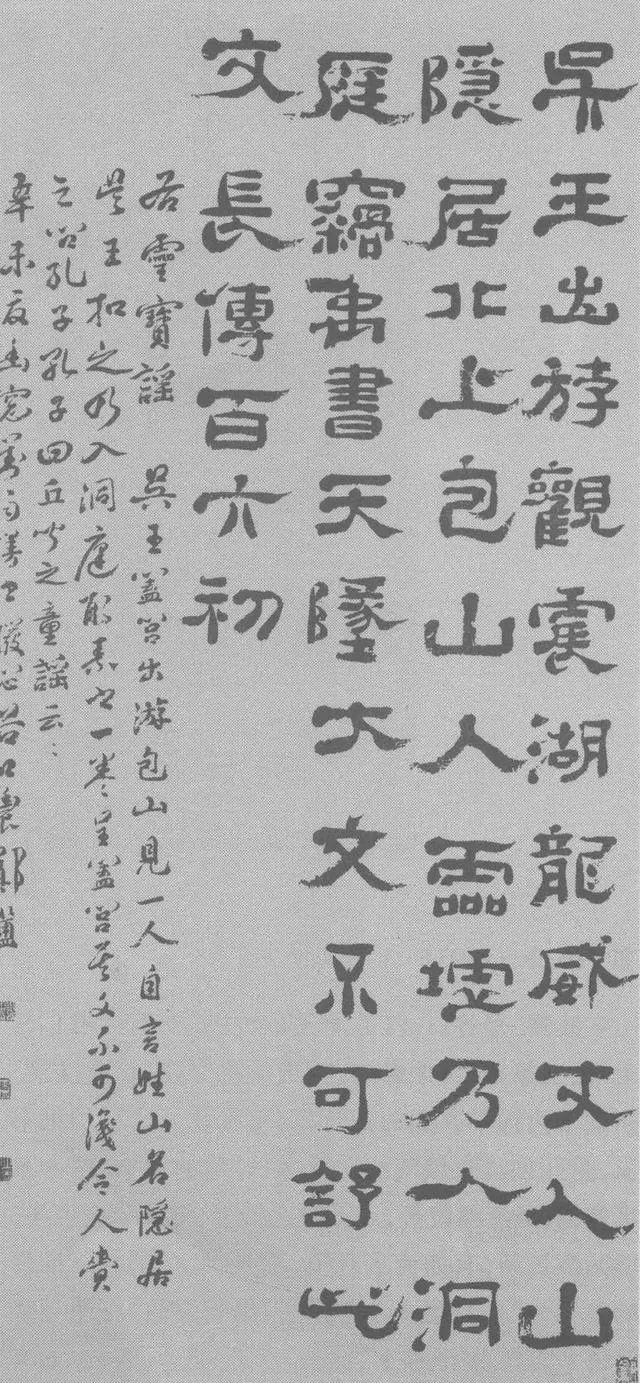 吳王出斿觀震湖龍威丈人山
隱居北上包山入靈墟乃入洞
庭竊禹書天墜大文不可舒此
文長傳百六初
右靈寶謠 吳王闔閭出游包山見一人自言姓山名隱居
吳王扣之乃入洞庭取素書一卷呈闔閭其文不可識令人賫
之問孔子孔子曰丘聞之童謠云〻
辛未夏谷口農鄭簠